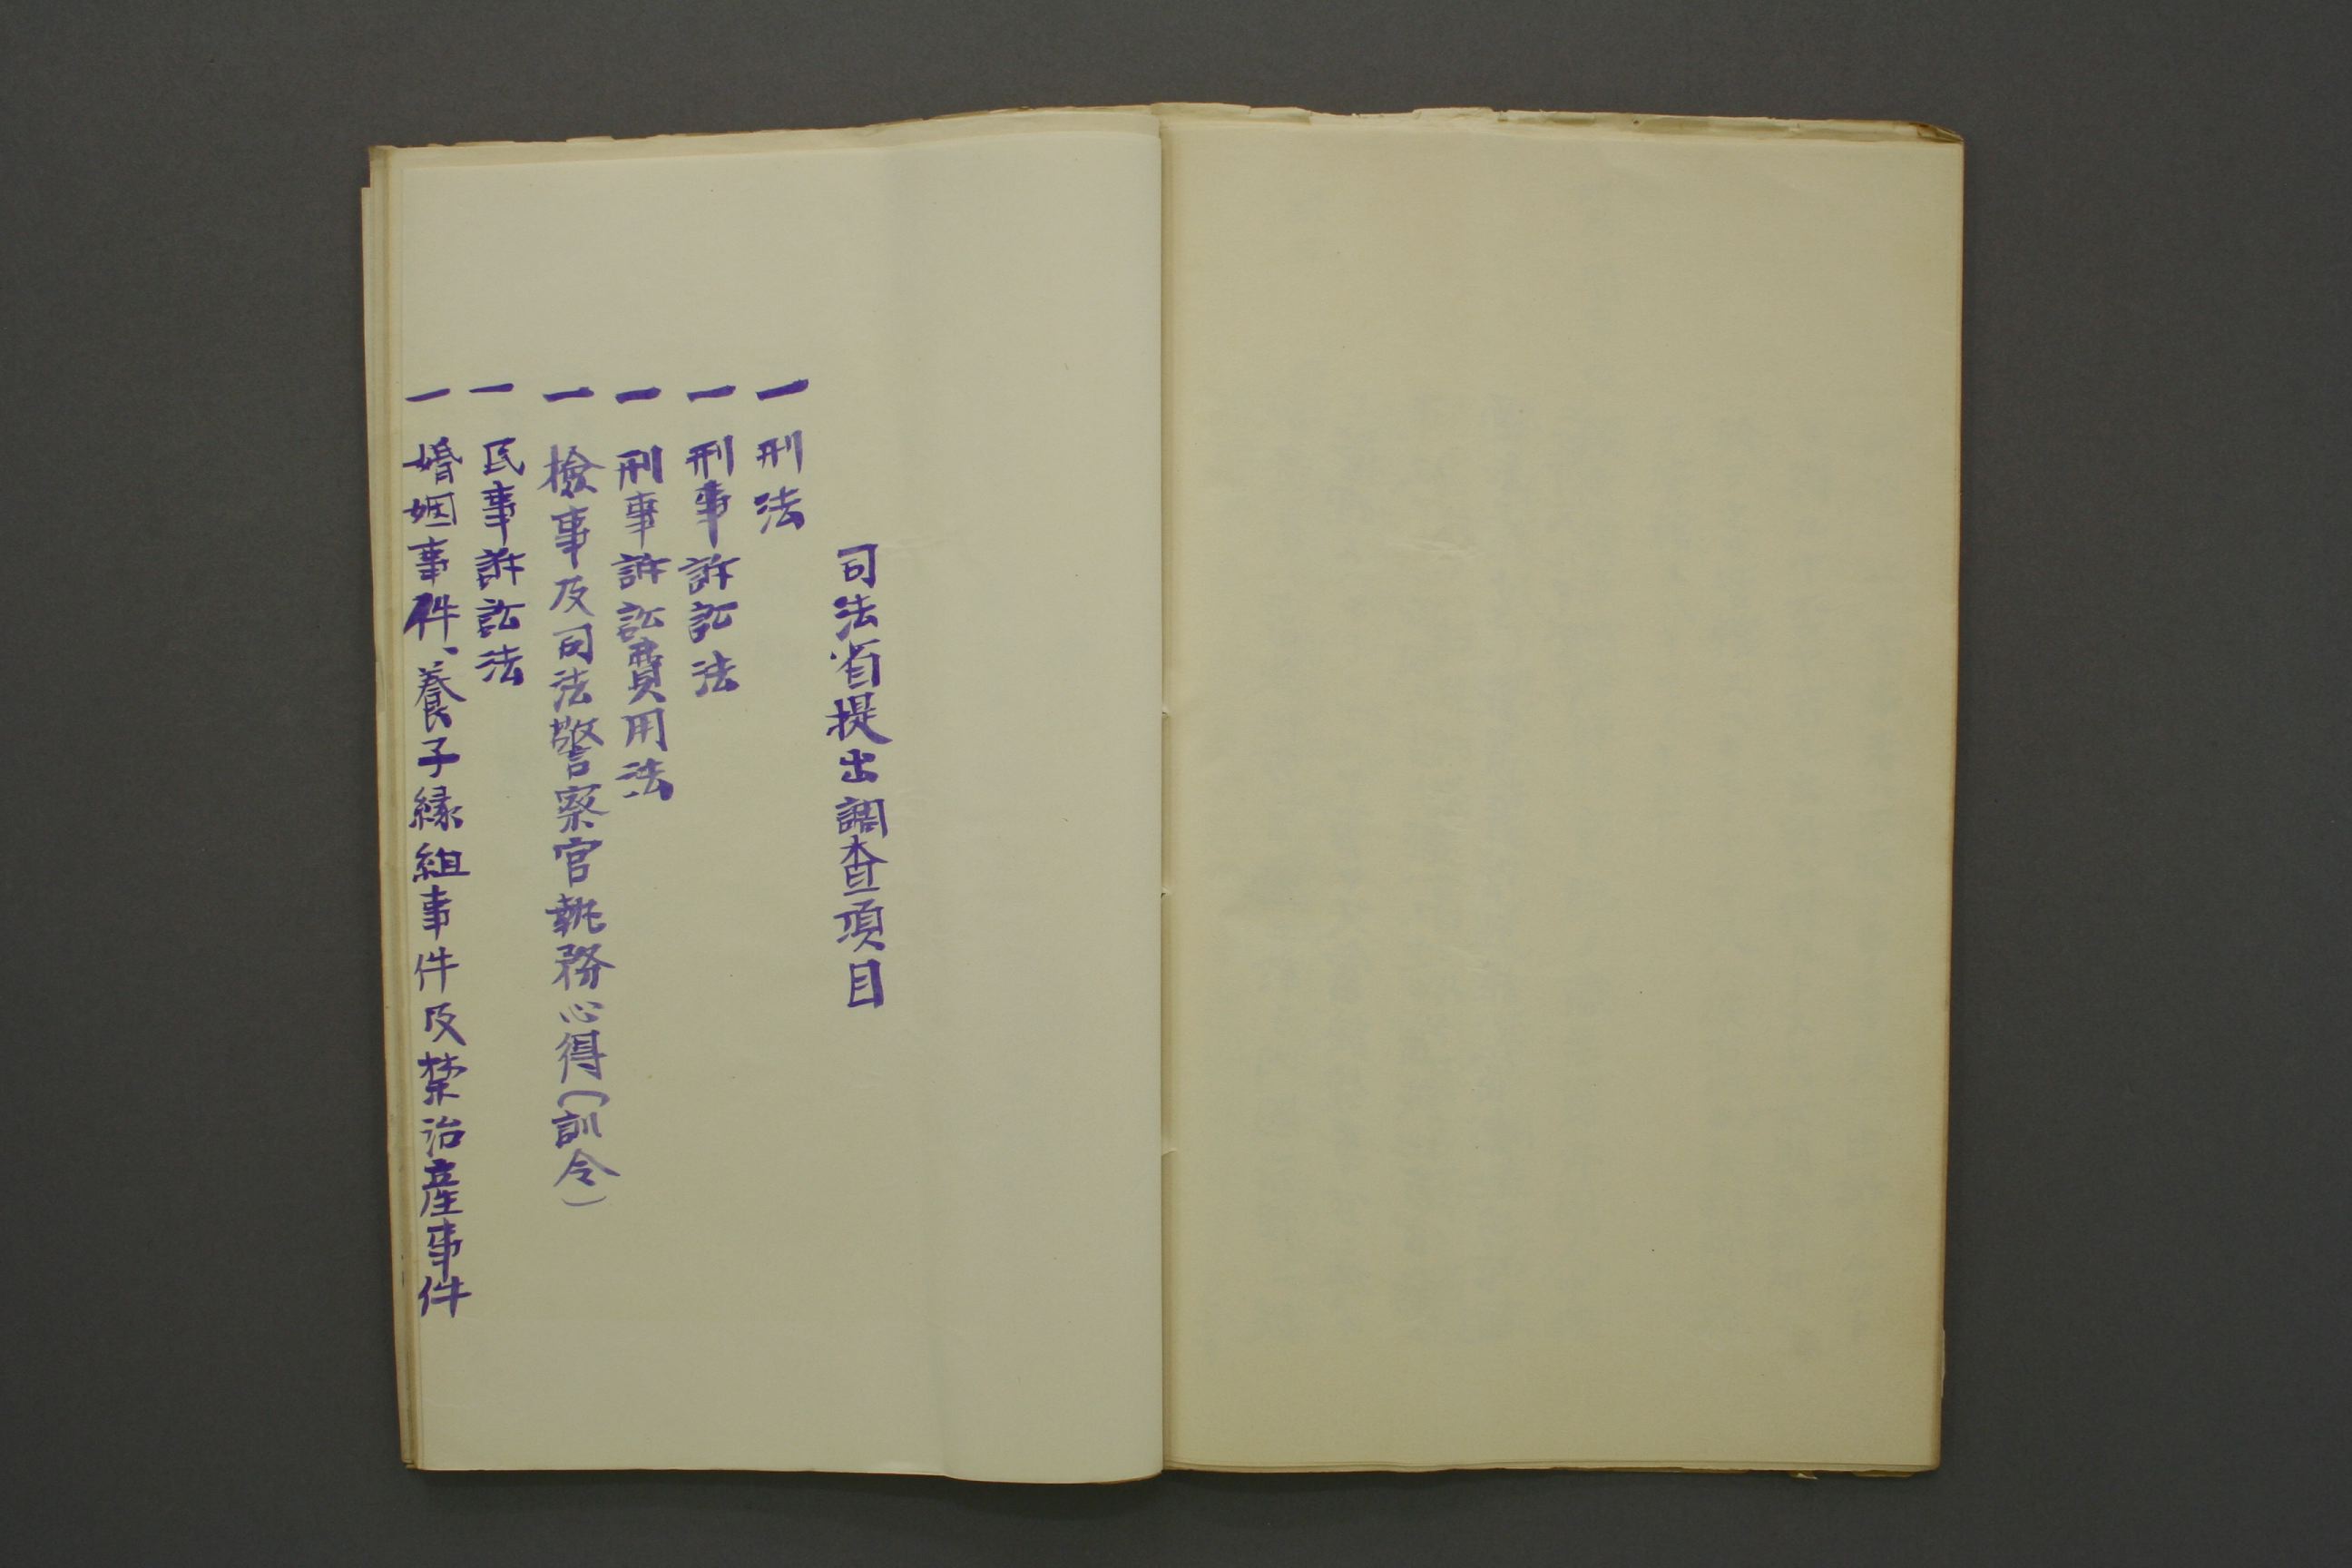 司法省提出調査項目
一 刑法
一 刑事訴訟法
一 刑事訴訟費用法
一 檢事及司法警察官執務心得(訓令)
一 民事訴訟法
一 婚姻事件、養子縁組事件及禁治産事件